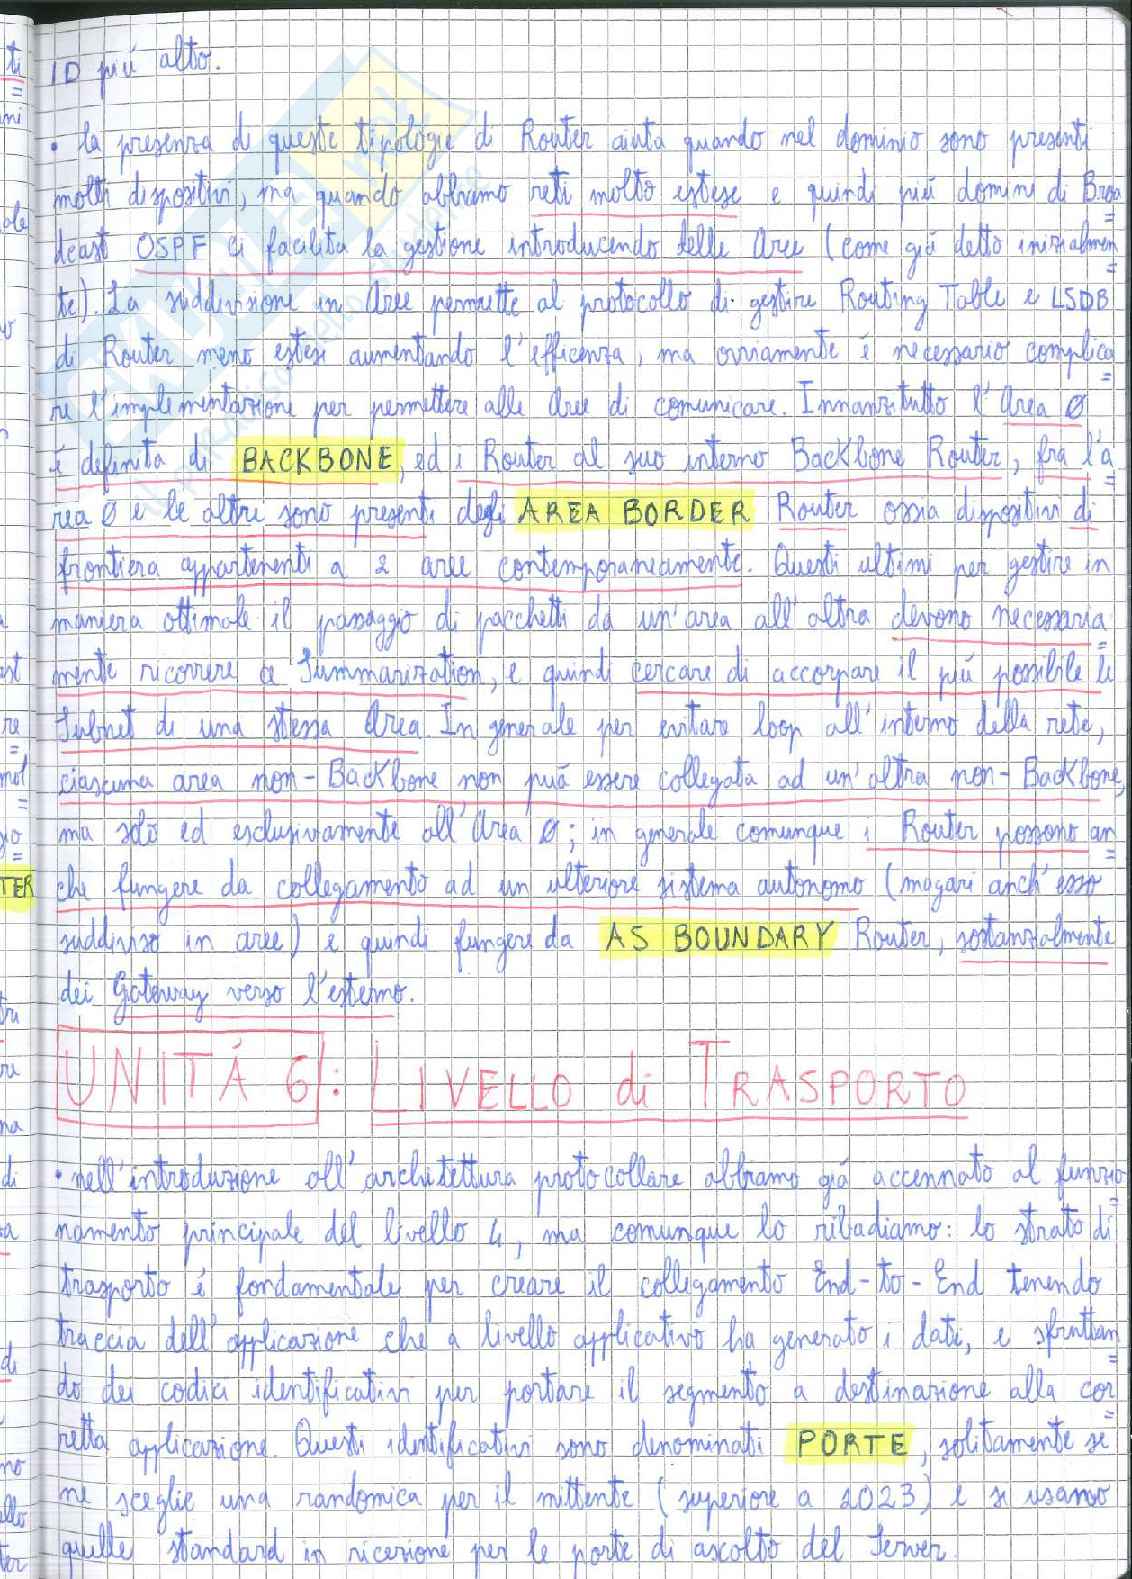 ID piú alto.
• la presenza di queste tipologie di Router aiuta quando nel dominio sono presenti
molti dispositivi, ma quando abbiamo reti molto estese e quindi piú domini di Broa=
dcast OSPF ci facilita la gestione introducendo delle Aree (come giá detto inizialmen=
te). La suddivisione in Aree permette al protocollo di gestire Routing Table e LSDB
di Router meno estesi aumentando l'efficenza, ma ovviamente é necessario complica=
re l'implementazione per permettere alle Aree di comunicare. Innanzitutto l'Area Ø
é definita di BACKBONE, ed i Router al suo interno Backbone Router, fra l'á=
rea Ø e le altri sono presenti degli AREA BORDER Router ossia dispositivi di
frontiera appartenenti a 2 aree contemporaneamente. Questi ultimi per gestire in
maniera ottimale il passaggio di pacchetti da un'area all'altra devono necessaria=
mente ricorrere a Summarization, e quindi cercare di accorpare il piú possibile le
Subnet di una stessa Area. In generale per evitare loop all'interno della rete,
ciascuna area non-Backbone non puó essere collegata ad un'altra non-Backbone,
ma solo ed esclusivamente all'Area Ø; in generale comunque i Router possono an=
che fungere da collegamento ad un ulteriore sistema autonomo (magari anch'esso
suddiviso in aree) e quindi fungere da AS BOUNDARY Router, sostanzialmente
dei Gateway verso l'esterno.
UNITÁ 6: LIVELLO di TRASPORTO
• nell'introduzione all'architettura protocollare abbiamo giá accennato al funzio=
namento principale del livello 4, ma comunque lo ribadiamo: lo strato di
trasporto é fondamentale per creare il collegamento End-to-End tenendo
traccia dell'applicazione che a livello applicativo ha generato i dati, e sfruttan=
do dei codici identificativi per portare il segmento a destinazione alla cor=
retta applicazione. Questi identificativi sono denominati PORTE, solitamente se
ne sceglie una randomica per il mittente (superiore a 2023) e si usano
quelle standard in ricezione per le porte di ascolto del Server.